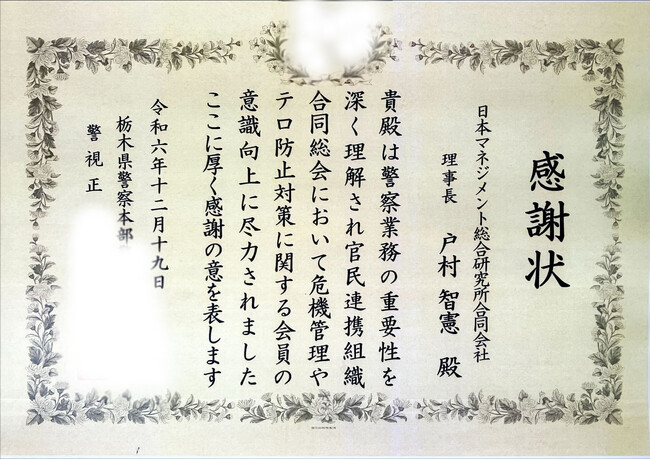 感謝状
日本マネジメント総合研究所合同会社
理事長　戸村 智憲 殿
貴殿は警察業務の重要性を
深く理解され官民連携組織
合同総会において危機管理や
テロ防止対策に関する会員の
意識向上に尽力されました
ここに厚く感謝の意を表します
令和六年十二月十九日
栃木県警察本部
警視正